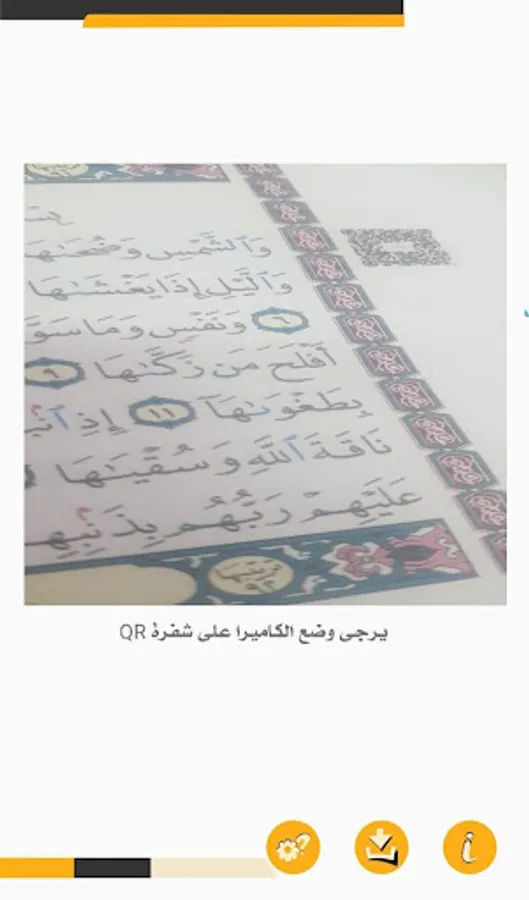 وَٱلشَّمْسِ وَضُحَىٰهَا
وَٱلَّيْلِ إِذَا يَغْشَىٰهَا
٦ وَنَفْسٍ وَمَا سَوَّ
أَفْلَحَ مَن زَكَّىٰهَا ٩
بِطَغْوَىٰهَآ ١١ إِذِ
نَاقَةَ ٱللَّهِ وَسُقْيَٰهَا
عَلَيْهِمْ رَبُّهُم
ترتيبها
٩٢
يرجى وضع الكاميرا على شفرة QR